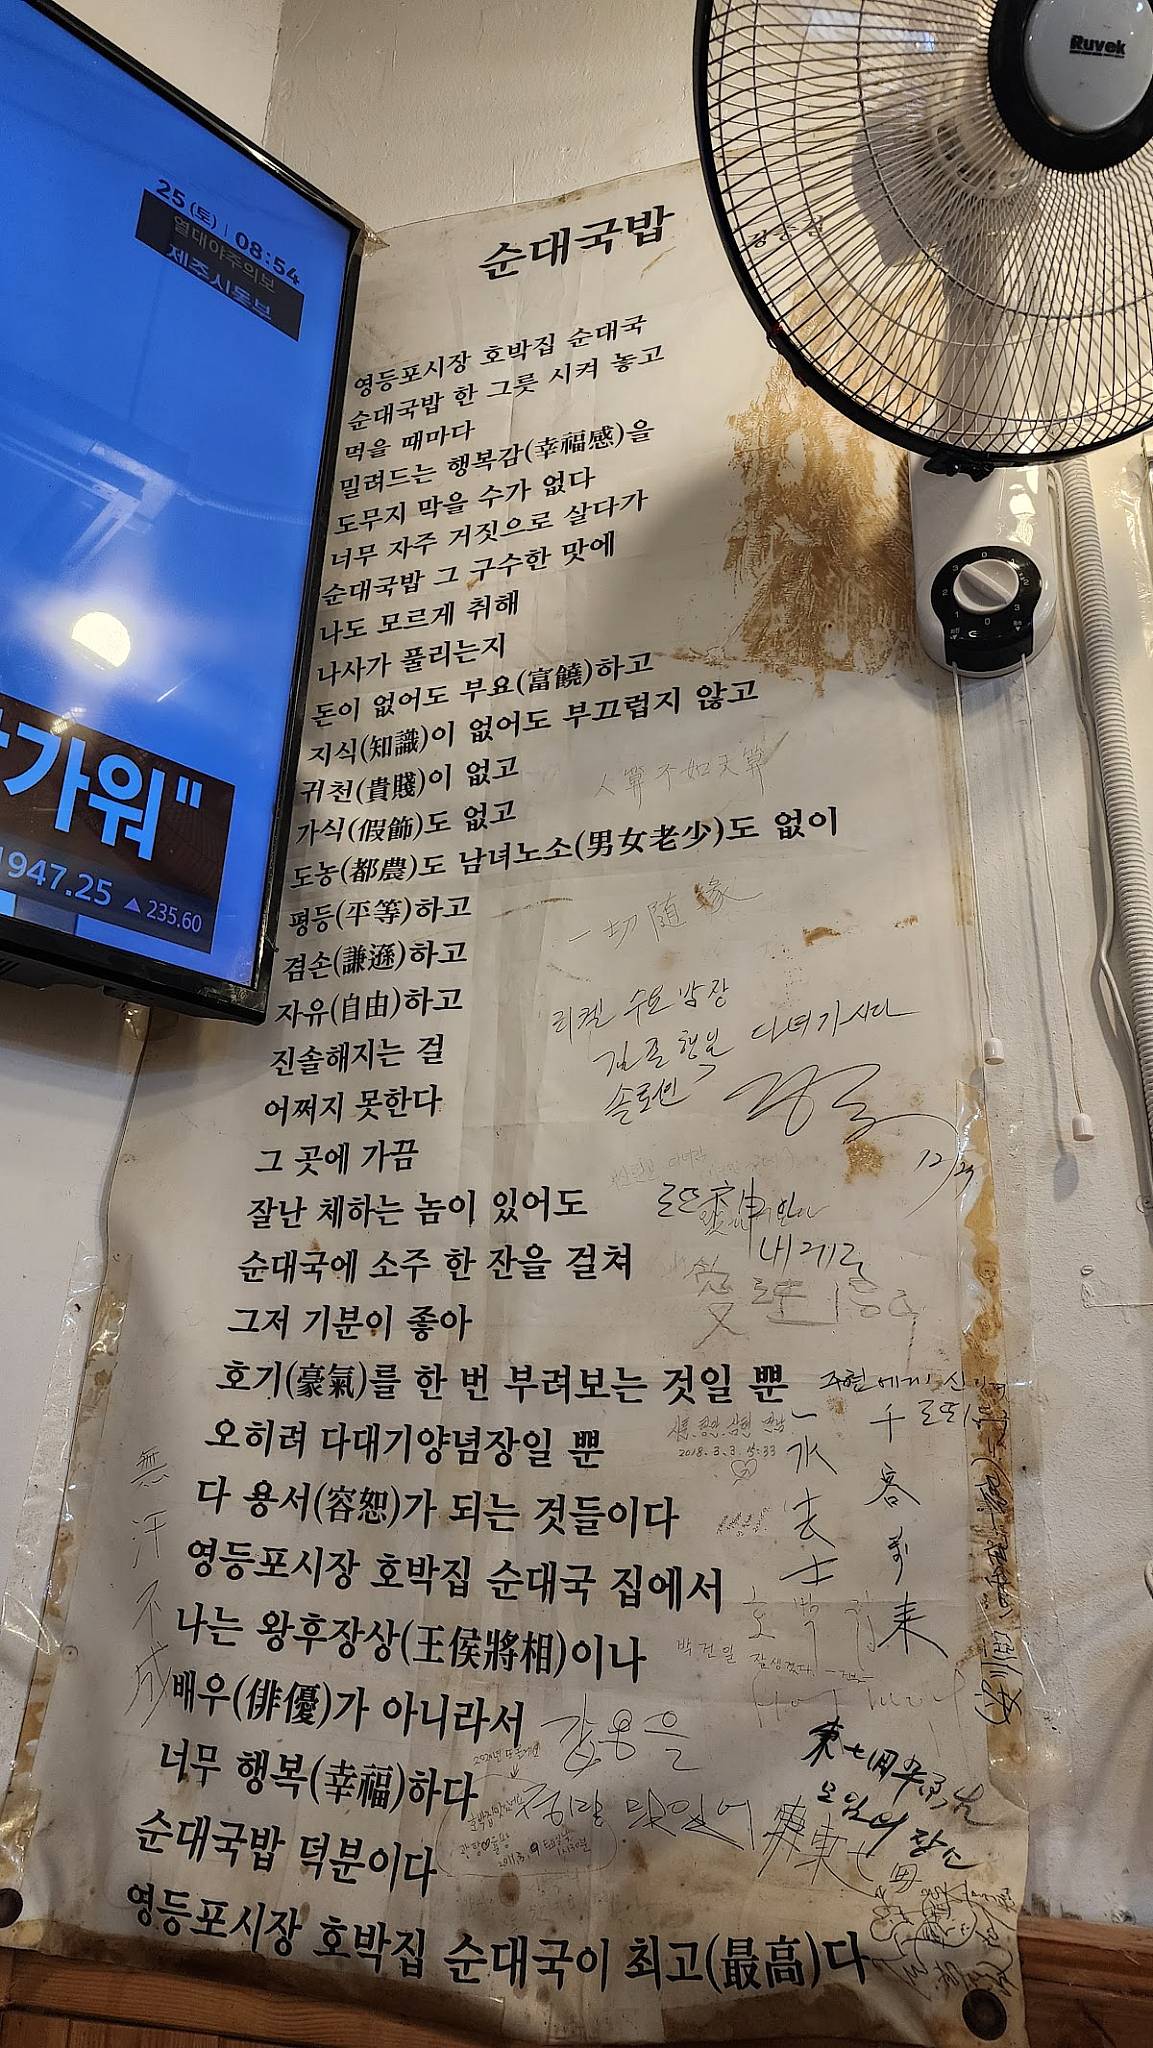 25(토) | 08:54
열대야주의보
제주시동부
가워"
1947.25 ▲235.60
Ruvek
순대국밥
영등포시장 호박집 순대국
순대국밥 한 그릇 시켜 놓고
먹을 때마다
밀려드는 행복감(幸福感)을
도무지 막을 수가 없다
너무 자주 거짓으로 살다가
순대국밥 그 구수한 맛에
나도 모르게 취해
나사가 풀리는지
돈이 없어도 부요(富饒)하고
지식(知識)이 없어도 부끄럽지 않고
귀천(貴賤)이 없고
가식(假飾)도 없고
도농(都農)도 남녀노소(男女老少)도 없이
평등(平等)하고
겸손(謙遜)하고
자유(自由)하고
진솔해지는 걸
어쩌지 못한다
그 곳에 가끔
잘난 체하는 놈이 있어도
순대국에 소주 한 잔을 걸쳐
그저 기분이 좋아
호기(豪氣)를 한 번 부려보는 것일 뿐
오히려 다대기양념장일 뿐
다 용서(容恕)가 되는 것들이다
영등포시장 호박집 순대국 집에서
나는 왕후장상(王侯將相)이나
배우(俳優)가 아니라서
너무 행복(幸福)하다
순대국밥 덕분이다
영등포시장 호박집 순대국이 최고(最高)다
人算不如天算
一切随缘
다녀가시다
12/29
내게로
2018.3.3.
無汗不成
호박집
박건일 잘생겼다
정말 맛있어